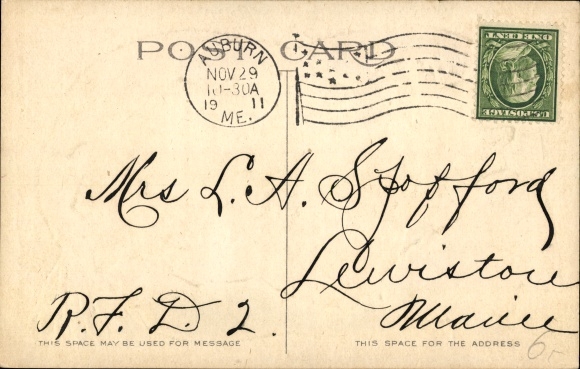 POST CARD
AUBURN
NOV 29
10-30A
19 11
ME.
U.S. POSTAGE
ONE CENT
Mrs L. A. Stofford
Lewiston
Maine
R. F. D. 2.
THIS SPACE MAY BE USED FOR MESSAGE
THIS SPACE FOR THE ADDRESS